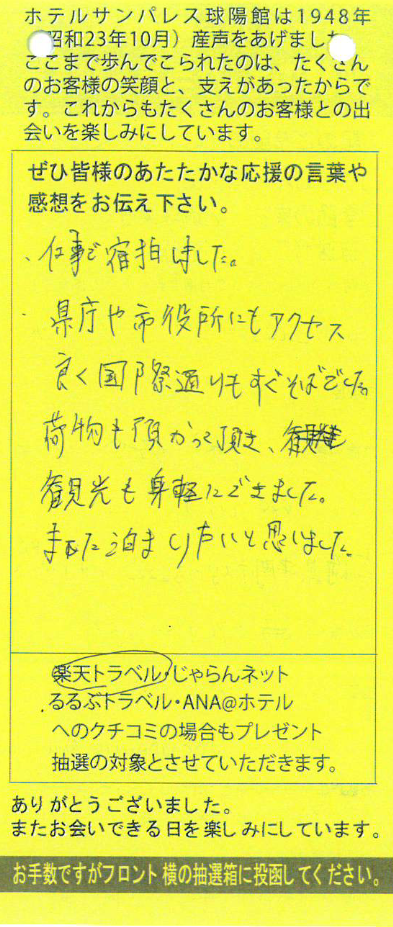 ホテルサンパレス球陽館は1948年
昭和23年10月）産声をあげました
ここまで歩んでこられたのは、たくさん
のお客様の笑顔と、支えがあったからで
す。これからもたくさんのお客様との出
会いを楽しみにしています。
ぜひ皆様のあたたかな応援の言葉や
感想をお伝え下さい。
仕事で宿泊しました。
県庁や市役所にもアクセス
良く国際通りもすぐそばでした。
荷物も預かって頂き、
観光も身軽にできました。
また泊まりたいと思いました。
楽天トラベル・じゃらんネット
るるぶトラベル・ANA@ホテル
へのクチコミの場合もプレゼント
抽選の対象とさせていただきます。
ありがとうございました。
またお会いできる日を楽しみにしています。
お手数ですがフロント横の抽選箱に投函してください。